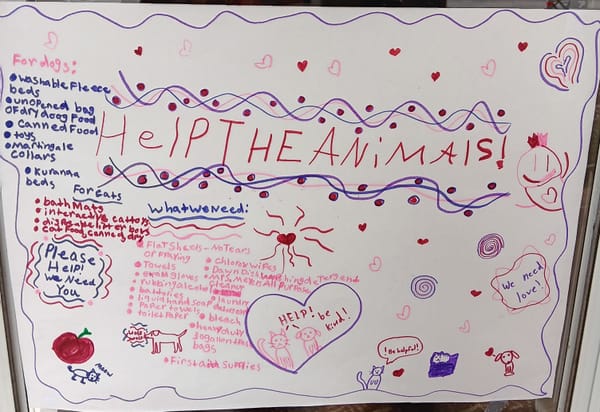 For dogs:
washable Fleece
beds
unopened bag
OF dry doog Food
Canned Food
toys
martingale
Collars
Kuranda
beds
HelP THE ANiMAlS!
For Cats
bath Mats
interactive cattoys
litter box
Cat Food, canned dry
What we Need:
Flat Sheets - No Tears
or Fraying
Towels
exam gloves
rubbing alcohol
batteries
liquid hand Soap
Paper towels
toilet Paper
chlorox wipes
Dawn Dish washing detergent
Mrs. Meyers All Purpose
laundry
detergent
bleach
heavy duty
bags
First aid Supplies
Please
Help!
We Need
You
HELP!
be
kind!
We need
love!
! Be helpful!
meow